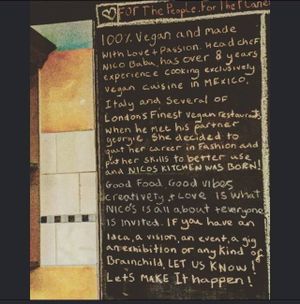 ♡ FOR The People. For The Plane
100% Vegan and made
With Love + Passion. Head chef
NICO Baba, has over 8 years
experience cooking exclusively
vegan cuisine in MEXICO,
Italy and Several of
Londons Finest vegan restaurants
when he met his partner
georgie. She decided to
quit her career in Fashion and
put her skills to better use
and NICOS KITCHEN WAS BORN!
Good Food, Good vibes,
creativety, + Love is what
NICO'S is all about + everyone
is invited. If you have an
Idea, a vision, an event, a gig
an exhibition or any Kind of
Brainchild, LET US KNOW!
Let's MAKE It happen!